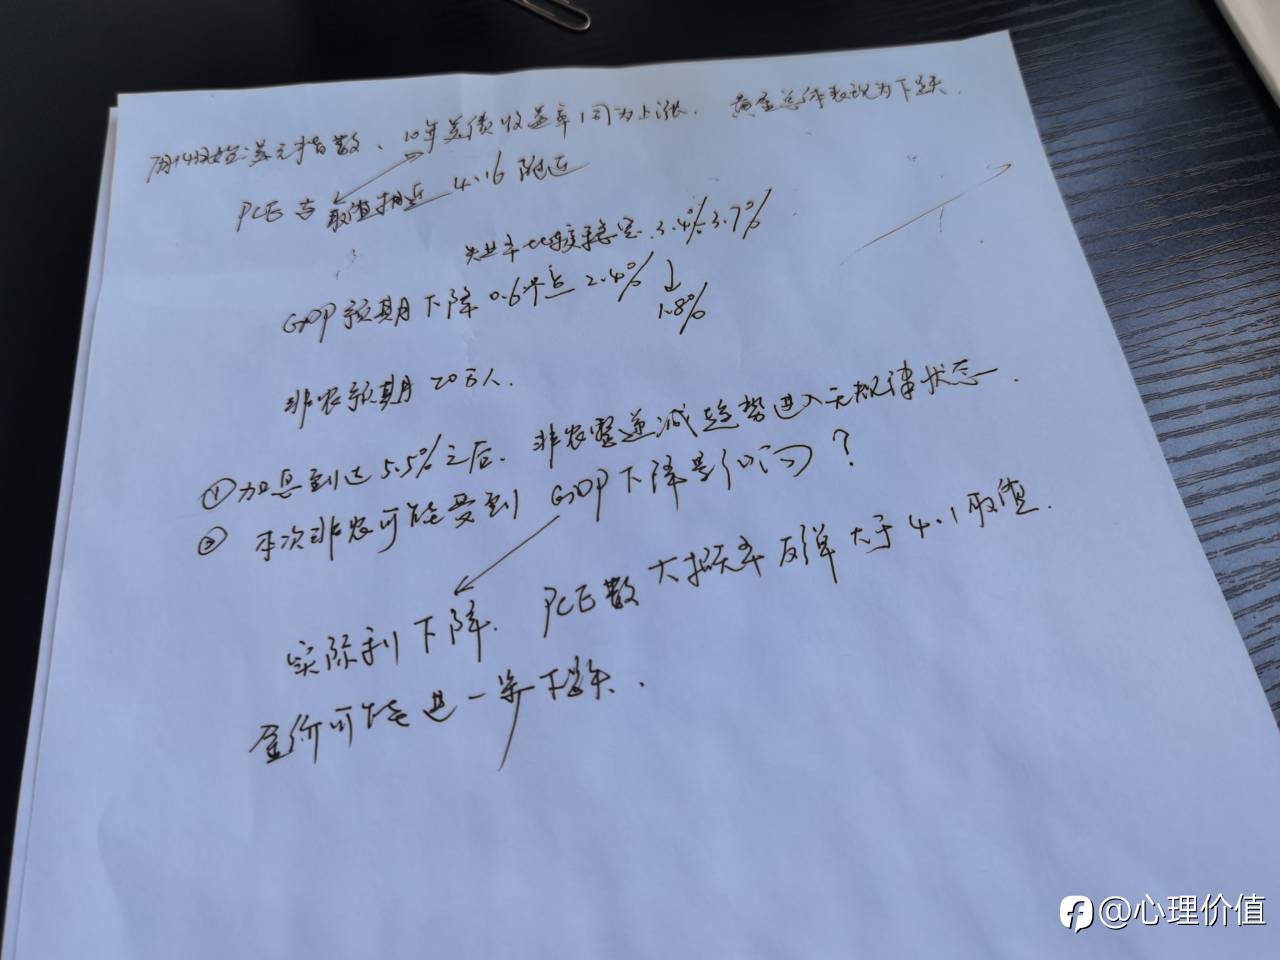 7月14日始美元指数、10年美债收益率同为上涨. 黄金总体表现为下跌.
PCE与取值相近 4.16 附近
失业率比较稳定. 3.4%-3.7%
GDP预期下降 0.6个点 2.4%
↓
1.8%
非农预期 20万人.
① 加息到达5.5%之后. 非农 递减趋势进入无规律状态.
② 本次非农可能受到 GDP下降影响？
实际利 下降. PCE数 大概率反弹大于4.1取值.
金价可能进一步下跌.
@心理价值